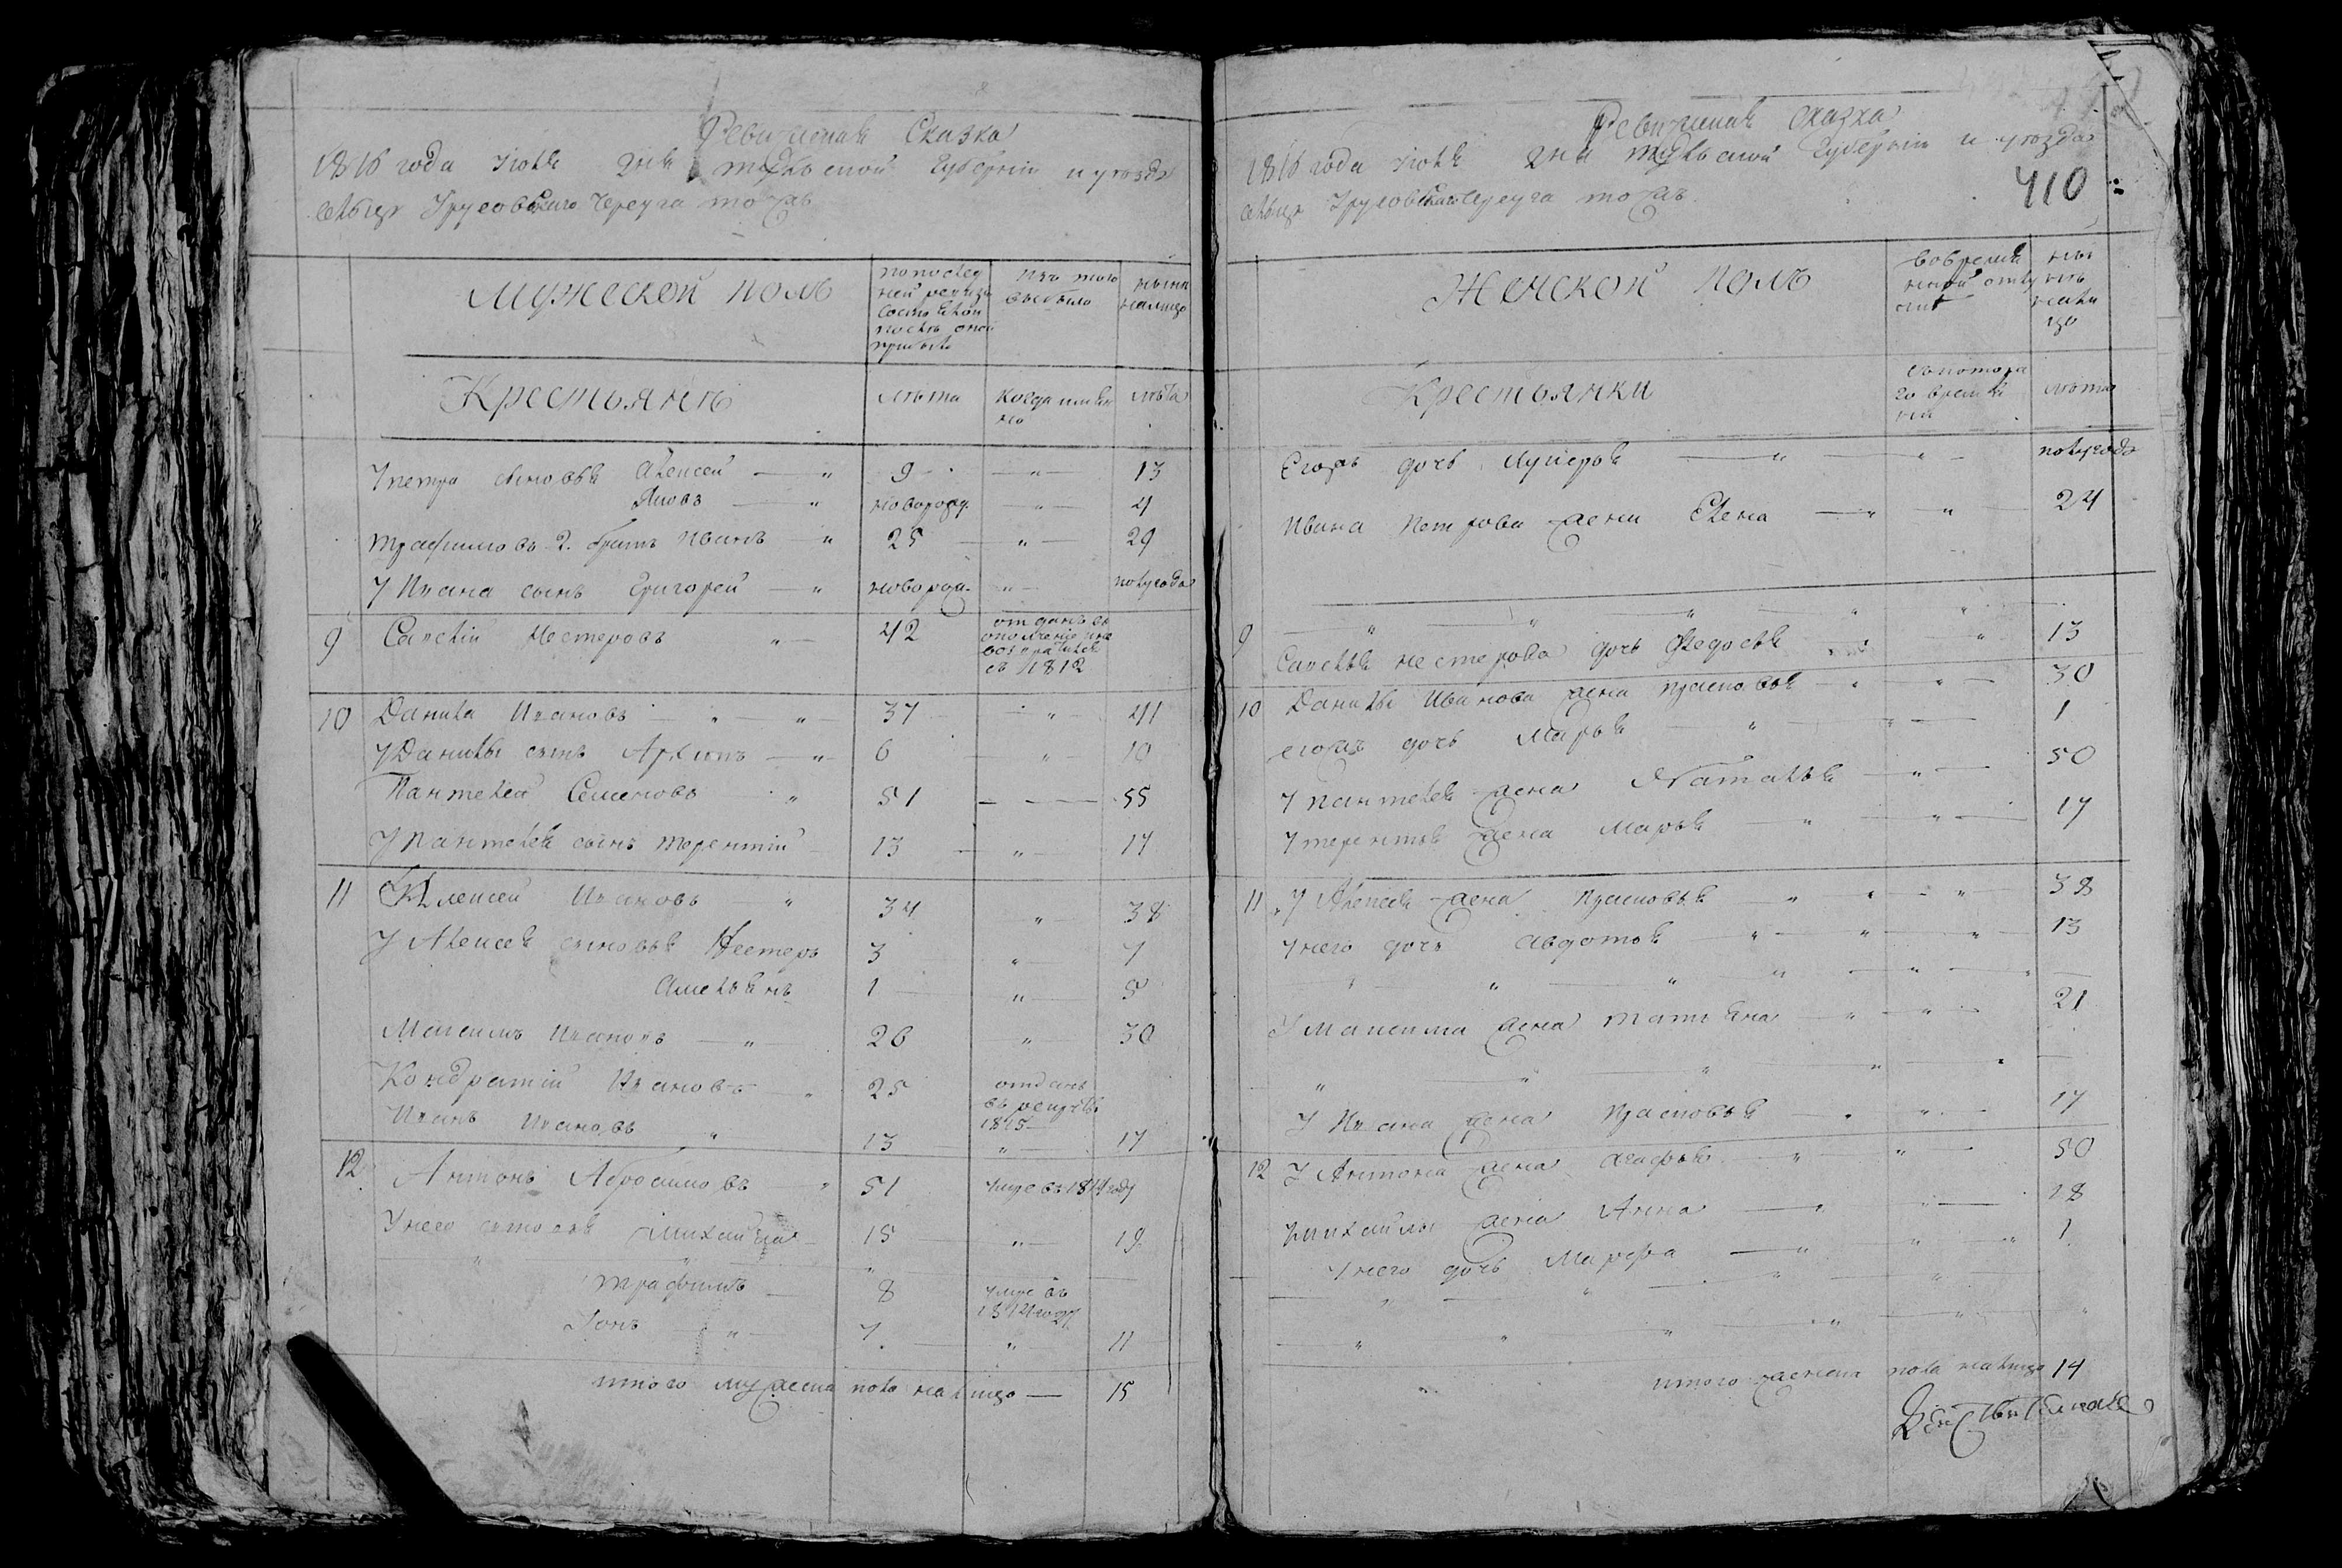 Ревизская Сказка
1816 года Июля дня Тульской Губернии и уезда
сельца Трусовского тожъ
Мужеской полъ
по послед
ней ревизи
состояло и
после оной
прибыло
изъ того
выбыло
ныне
налицо
Крестьянъ
лѣта
когда имян
но
лѣта
У Петра сыновья Алексей — " 9 — " — 13
Яковъ — " новорожд. — " — 4
Трафимовъ 2. братъ Иванъ — " 25 — " — 29
У Ивана сынъ Григорей — " новорожд. — " — полугода
9 Савелий Нестеровъ " — 42
отданъ въ
ополчение и не
возвратился
въ 1812
10 Данила Ивановъ — " — " 37 — " — 41
У Данилы сынъ Архипъ — " — 6 — " — 10
Пантелей Семеновъ " 51 — — 55
У Пантелея сынъ Терентий — 13 — " — 17
11 Алексей Ивановъ — " 34 " — 38
У Алексея сыновья Нестеръ 3 — " — 7
Амельянъ 1 — " — 5
Максимъ Ивановъ — " — 26 " 30
Кондратий Ивановъ — " 25
отданъ
въ рекруты
1815
Иванъ Ивановъ " 13 " — 17
12 Антонъ Абросимовъ — " 51 умре въ 1814 году
У него сыновья Михайла — 15 " — 19
Трафимъ — 8
умре въ
1814 году
Ионъ — " — 7 " — 11
итого мужеска пола налицо — 15
Ревизская сказка
1816 года Июля дня Тульской Губернии и уезда
сельца Трусовского тожъ
410
Женской полъ
во времян
ной отлу
чке
ны
не
нали
цо
Крестьянки
съ котора
го време
ни
лѣта
Егожъ дочь Лукерья — " — " — полугода
Ивана Петрова жена Елена — " — " — 24
9 Савелья Нестерова дочь Федосья — " — 13
10 Данилы Иванова жена Прасковья — " — " — 30
егожъ дочь Марья — " — " — 1
У Пантелея жена Наталья — " — 50
У Терентья жена Марья — " — " — 17
11 У Алексея жена Прасковья — " " — " 38
У него дочь Авдотья — " — " — " 13
У Максима жена Татьяна — " — " — 21
У Ивана жена Прасковья — " " — 17
12 У Антона жена Агафья — " " — 50
У Михайлы жена Анна — " " — 18
У него дочь Марфа — " " — " 1
итого женска пола налицо 14